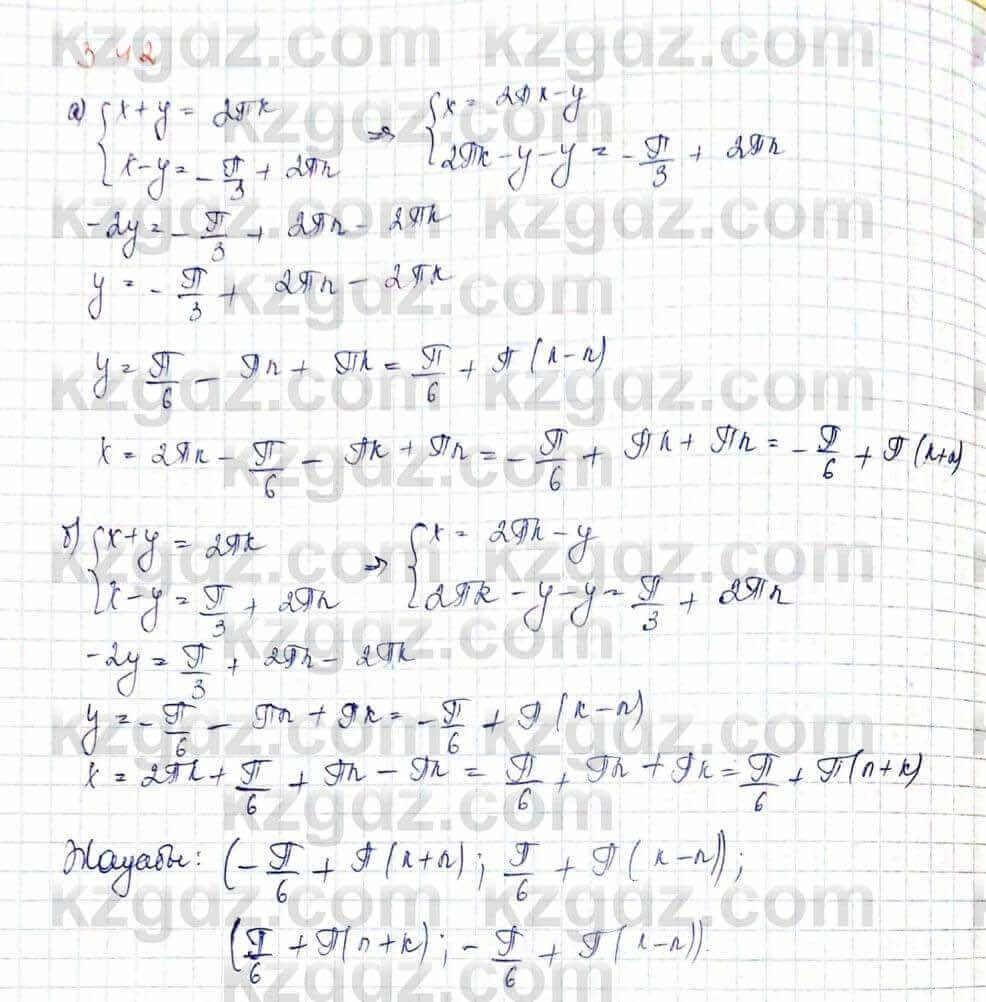 kzgaz.com kzgaz.com
3 42
а) { x + y = 2πk ⇒ { x = 2πk − y
{ x − y = −π/3 + 2πn { 2πk − y − y = −π/3 + 2πn
−2y = −π/3 + 2πn − 2πk
y = −π/3 + 2πn − 2πk
y = π/6 − πn + πk = π/6 + π(k−n)
x = 2πk − π/6 − πk + πn = −π/6 + πk + πn = −π/6 + π(k+n)
б) { x + y = 2πk ⇒ { x = 2πk − y
{ x − y = π/3 + 2πn { 2πk − y − y = π/3 + 2πn
−2y = π/3 + 2πn − 2πk
y = −π/6 − πn + πk = −π/6 + π(k−n)
x = 2πk + π/6 + πn − πk = π/6 + πn + πk = π/6 + π(n+k)
Жауабы: (−π/6 + π(k+n); π/6 + π(k−n));
(π/6 + π(n+k); −π/6 + π(k−n)).